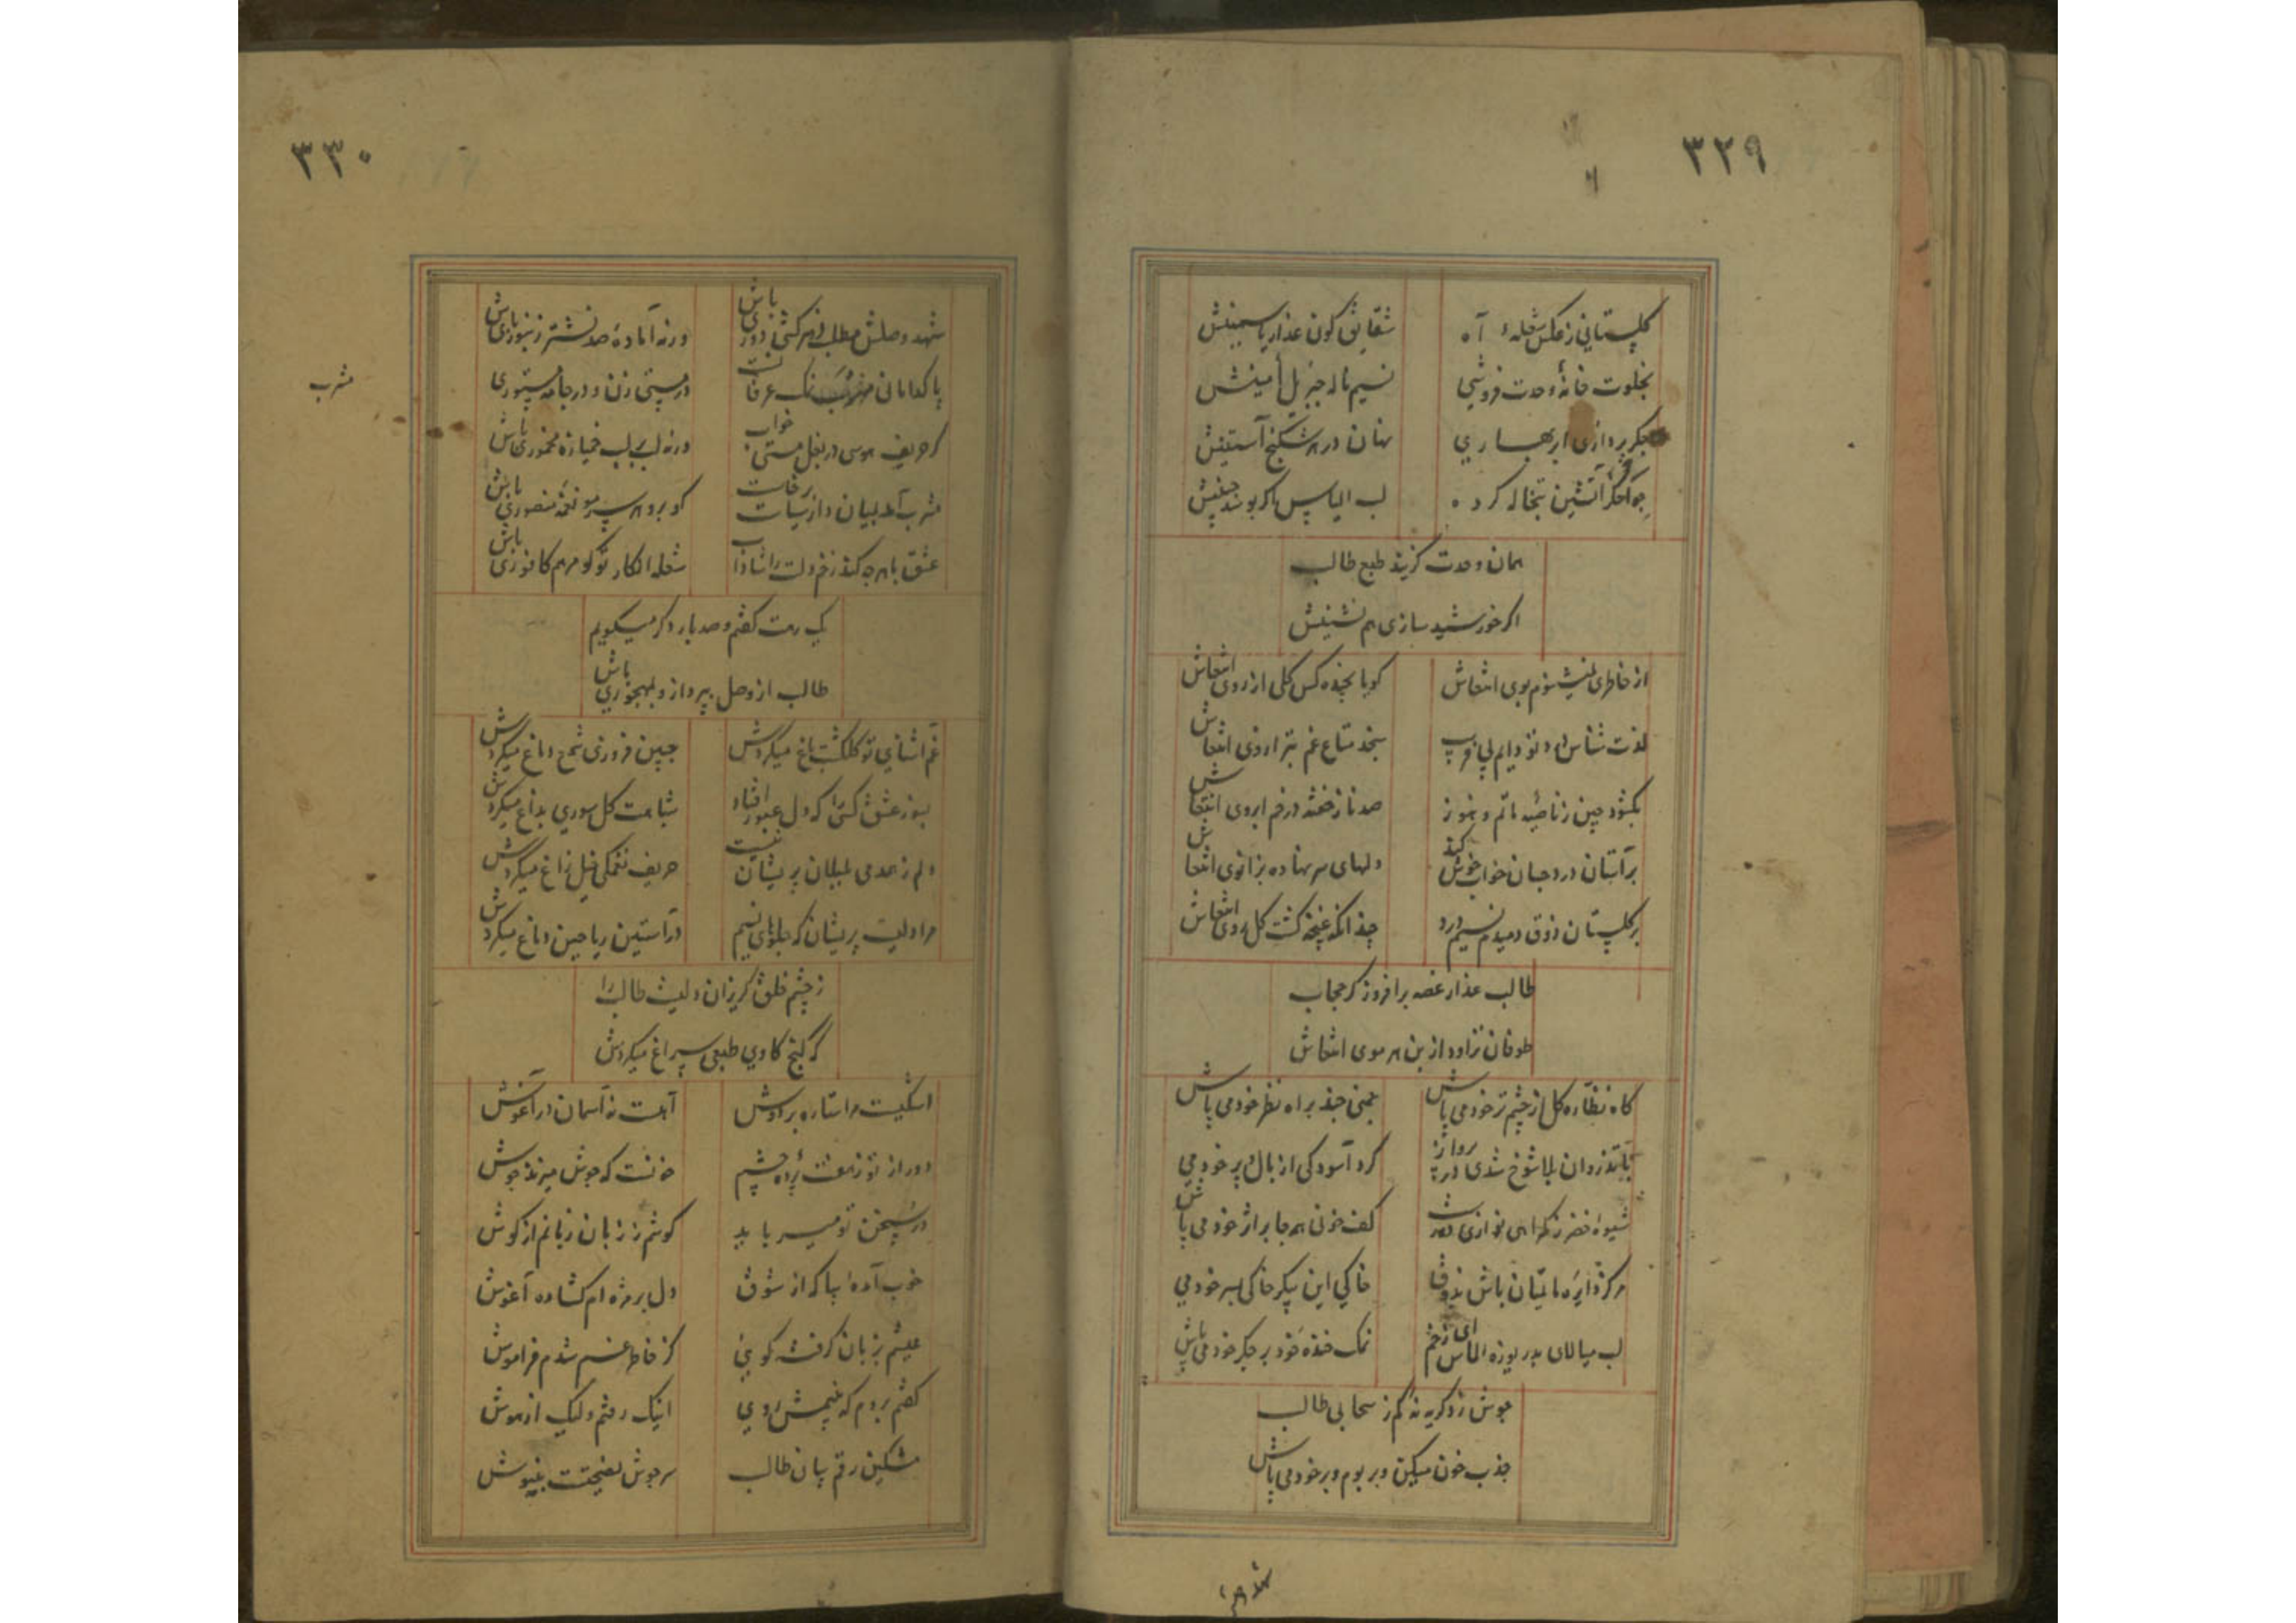 ۳۲۹
گلستانی ز عکس شعلهٔ آه
شقایق گون عذار یاسمینش
بخلوت خانهٔ وحدت فروشی
نسیم ناله جبریل امینش
جگر پردازی ابر بهاری
نهان در هر شکنج آستینش
چو اخگر آتشین تبخاله کرده
لب الیاس اگر بوسد جبینش
همان وحدت گزیند طبع طالب
اگر خورشید سازی هم نشینش
از خاطری نمی شنوم بوی انتعاش
گویا نچیده کس گلی از روی انتعاش
لذت شناس درد تو دایم
سنجد متاع غم بترازوی انتعاش
نگشود چین ز ناصیه ماتم و هنوز
صد ناز خفته در خم ابروی انتعاش
بر آستان درد جهان خواب خوش کند
دلهای سر نهاده بزانوی انتعاش
بر گلستان ذوق دمیدم نسیم درد
چندانکه غنچه گشت گل روی انتعاش
طالب عذار غصه برافروز کز حجاب
طوفان تراود از بن هر موی انتعاش
گاه نظاره گل از چشم تر خود می پاش
چمنی چند براه نظر خود می پاش
با تذروان بلا شوخ شدی در پرواز
گرد آسودگی از بال و پر خود می
شیوه خضر ز گمراهی نوازی
کف خونی همه جا بر اثر خود می پاش
مرکز دایره ماتمیان باش بذوق
خاکی این پیکر خاکی بسر خود می
لب میالای بدریوزه الماس ای زخم
نمک خنده خود بر جگر خود می پاش
جوش زد گریه نه کم ز سحابی طالب
جذب خون میکن و بر بوم و بر خود می پاش
۳۳۰
شهد وصلش مطلب از هر گنجی دوری باش
ورنه آمادهٔ صد نشتر زنبوری باش
پاکدامانی مشرب نمک عرفانست
در مستی زن و در جامه مستوری
مشرب
گر حریف هوسی در بغل مستی خواب
ورنه لب بر لب خمیازه مخموری باش
گو برو هر سر مو نغمه منصوری باش
عشق با هر چه کند زخم دلت را شاداب
شعله انکار تو گو مرهم کافوری باش
یک رهت گفتم و صد بار دگر میگویم
طالب از وصل بپرداز و بمهجوری باش
غم آشنای تو گلگشت باغ میکردش
جبین فروزی شمع داغ میکردش
بسوز عشق کسی را که دل عبور افتاد
شباهت گل سوری بداغ میکردش
دلم ز همدمی بلبلان پریشان نیست
حریف نغمگی خیل زاغ میکردش
مرا دلیست پریشان که جلوهای نسیم
در آستین ریاحین دماغ میکردش
ز چشم خلق گریزان دلیست طالب را
که گنج کاوی طبعی سراغ میکردش
اشکیست مرا ستاره بر دوش
آهست نه آسمان در آغوش
دور از تو ز هفت پرده چشم
خونست که جوش میزند جوش
در سخن تو میرباید
گوشم ز زبان زبانم از گوش
خوب آمده بیا که از شوق
دل بر مژه ام گشاده آغوش
عیشم بزبان گرفت گویی
کز خاطر غم شدم فراموش
گفتم بروم که بینمش روی
اینک رفتم ولیک از هوش
مشکین رقم بیان طالب
سرجوش نصیحتت بنیوش